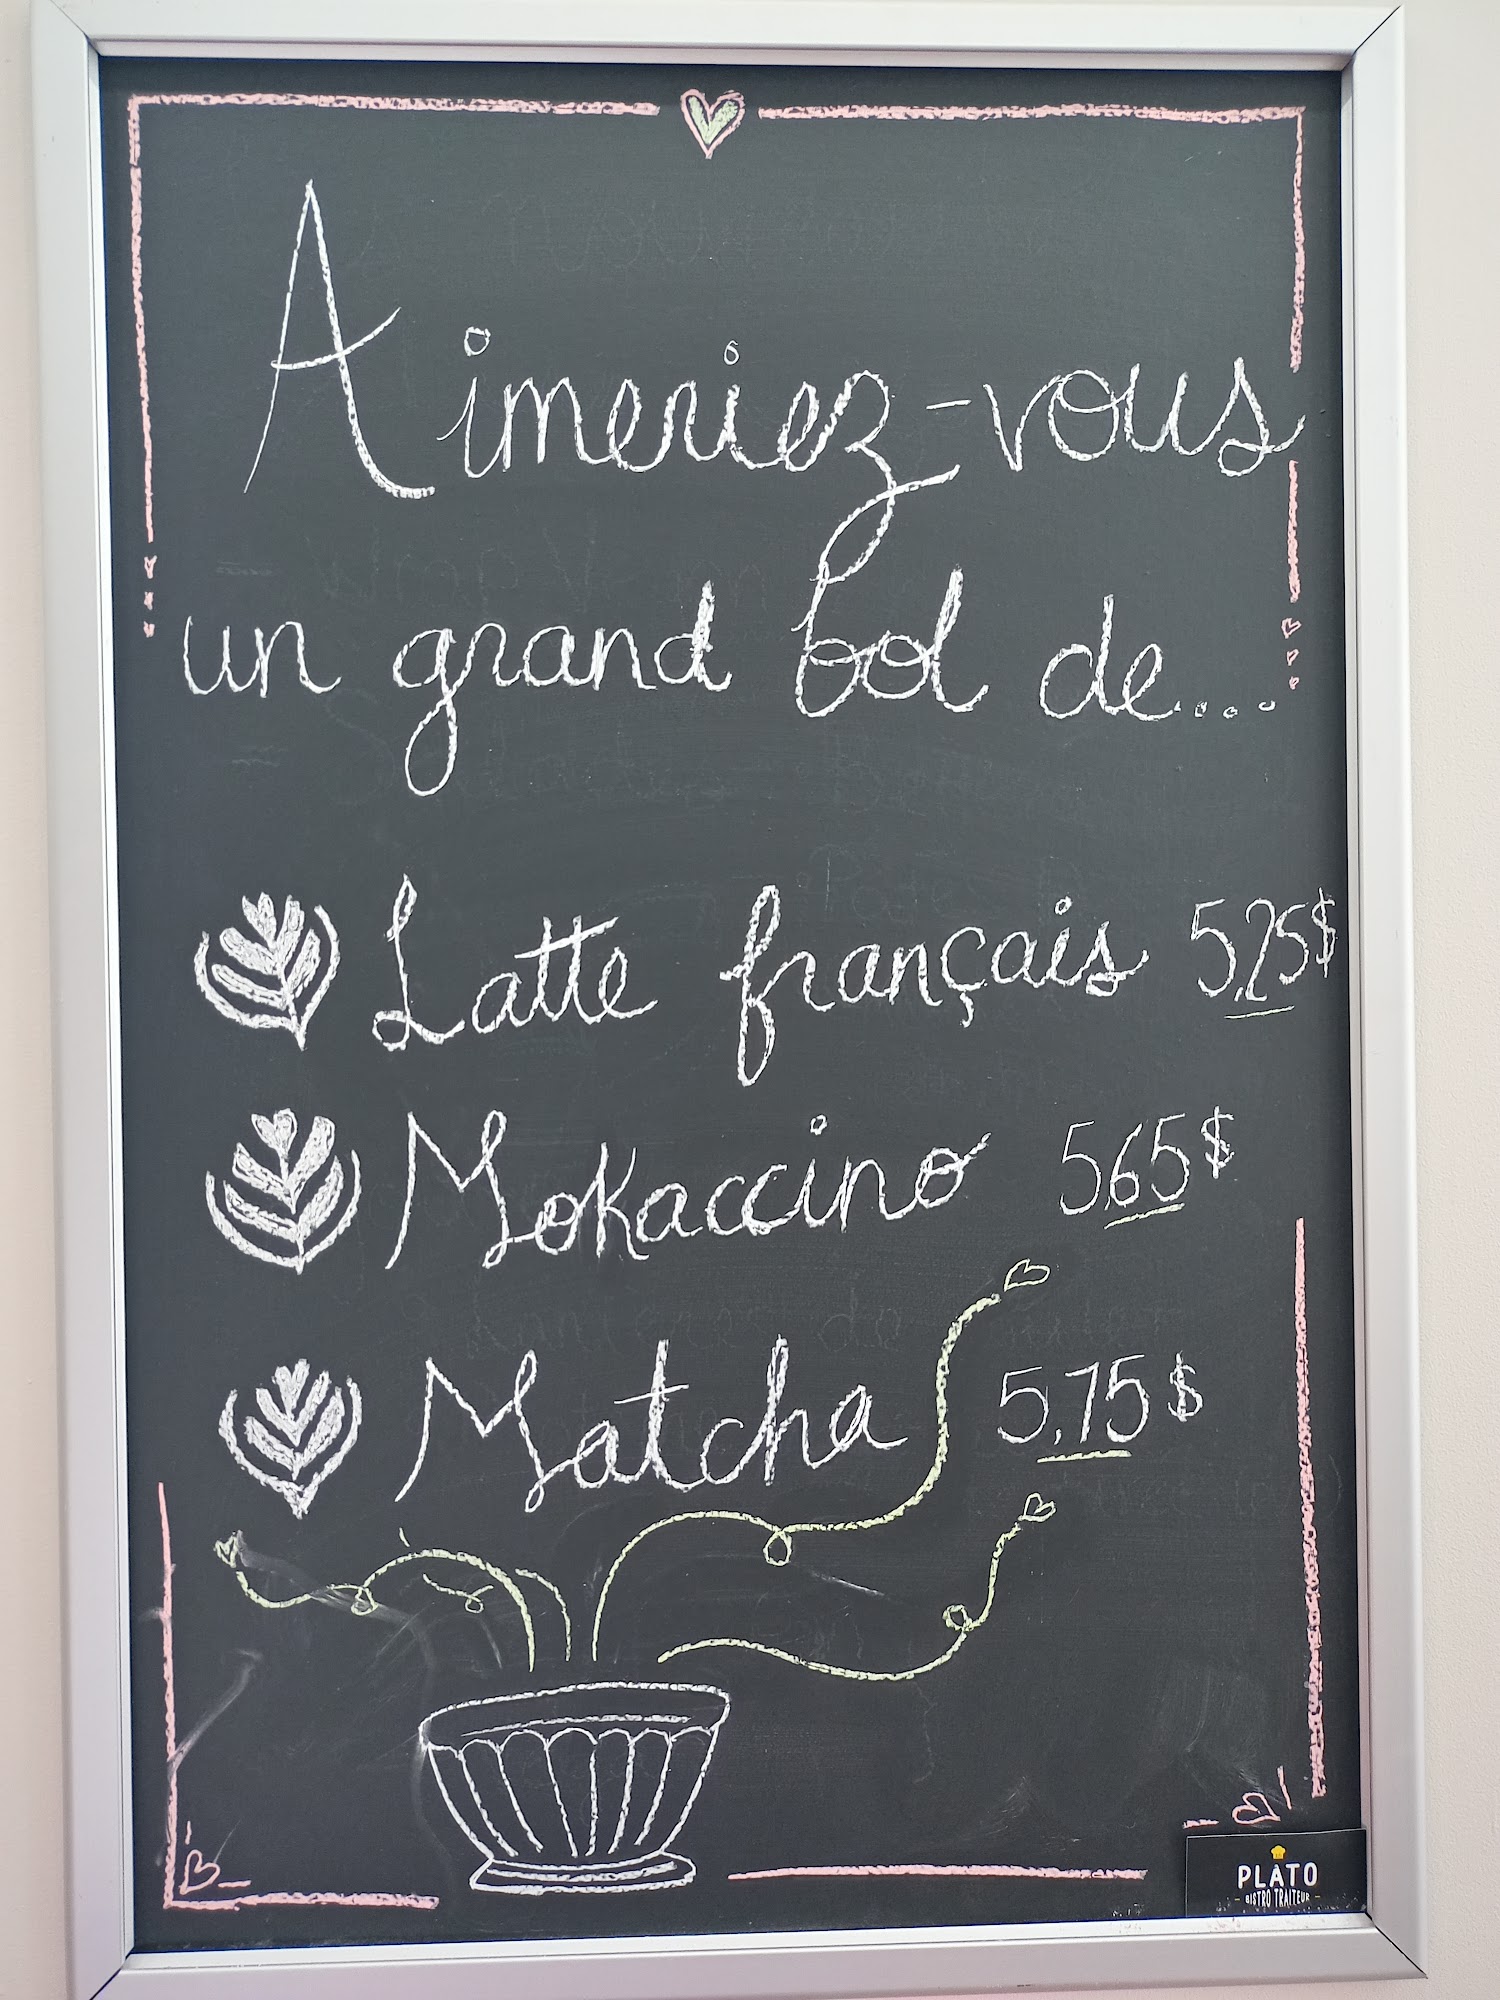 Aimeriez-vous
un grand bol de....
Latte français 5,25$
Mokaccino 5,65$
Matcha 5,75$
PLATO
- BISTRO TRAITEUR -